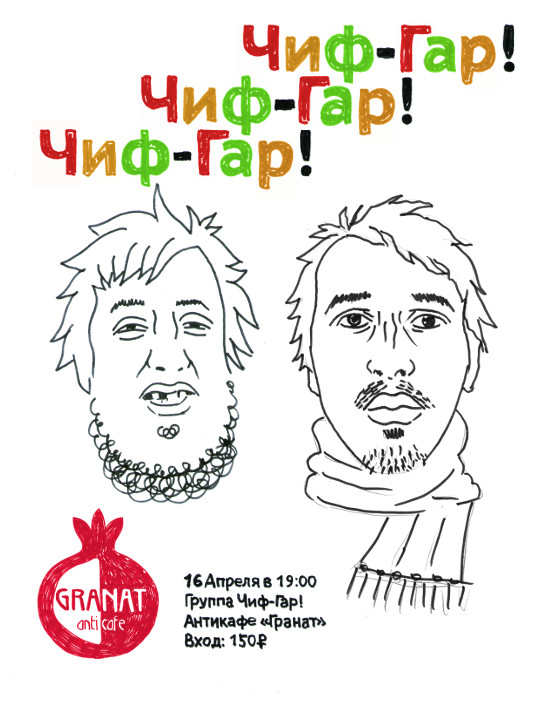 Чиф-Гар!
Чиф-Гар!
Чиф-Гар!
GRANAT
anti cafe
16 Апреля в 19:00
Группа Чиф-Гар!
Антикафе «Гранат»
Вход: 150₽